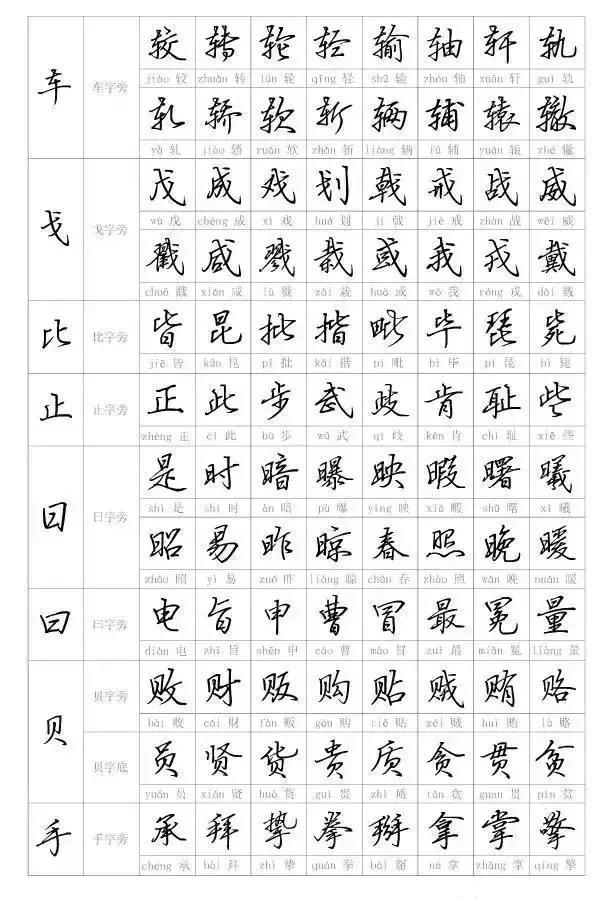 较 转 轮 轻 输 轴 轩 轨
车 车字旁
jiào 较 zhuǎn 转 lún 轮 qīng 轻 shū 输 zhóu 轴 xuān 轩 guǐ 轨
轧 轿 软 斩 辆 辅 辕 辙
yà 轧 jiào 轿 ruǎn 软 zhǎn 斩 liàng 辆 fǔ 辅 yuán 辕 zhé 辙
戊 成 戏 划 戟 戒 战 威
wù 戊 chéng 成 xì 戏 huá 划 jǐ 戟 jiè 戒 zhàn 战 wēi 威
戈 戈字旁
戳 咸 戮 栽 或 我 戎 戴
chuō 戳 xián 咸 lù 戮 zāi 栽 huò 或 wǒ 我 róng 戎 dài 戴
比 比字旁 皆 昆 批 揩 毗 毕 琵 毙
jiē 皆 kūn 昆 pī 批 kāi 揩 pí 毗 bì 毕 pí 琵 bì 毙
止 止字旁 正 此 步 武 歧 肯 耻 些
zhèng 正 cǐ 此 bù 步 wǔ 武 qí 歧 kěn 肯 chǐ 耻 xiē 些
是 时 暗 曝 映 暇 曙 曦
shì 是 shí 时 àn 暗 pù 曝 yìng 映 xiá 暇 shǔ 曙 xī 曦
日 日字旁
昭 易 昨 晾 春 照 晚 暖
zhāo 昭 yì 易 zuó 昨 liàng 晾 chūn 春 zhào 照 wǎn 晚 nuǎn 暖
曰 曰字旁 电 旨 申 曹 冒 最 冕 量
diàn 电 zhǐ 旨 shēn 申 cáo 曹 mào 冒 zuì 最 miǎn 冕 liàng 量
贝字旁 败 财 贩 购 贴 贼 贿 赂
bài 败 cái 财 fàn 贩 gòu 购 tiē 贴 zéi 贼 huì 贿 lù 赂
贝
贝字底 员 贤 货 贵 质 贪 贯 贫
yuán 员 xián 贤 huò 货 guì 贵 zhì 质 tān 贪 guàn 贯 pín 贫
手 手字旁 承 拜 挚 拳 掰 拿 掌 擎
chéng 承 bài 拜 zhì 挚 quán 拳 bāi 掰 ná 拿 zhǎng 掌 qíng 擎